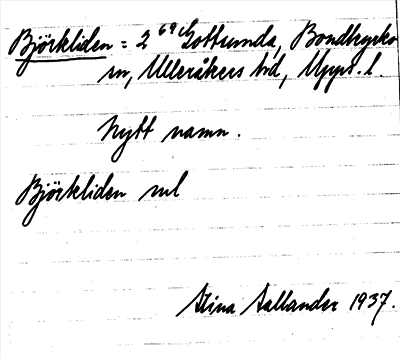 Björkliden = 2⁶⁹ Gottsunda, Bondkyrko
sn, Ulleråkers hd, Upps. l.
Nytt namn.
Björkliden ml
Stina Sallander 1937.